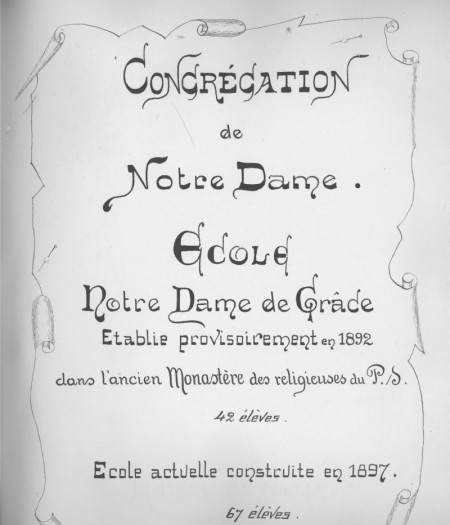 CONGRÉGATION
de
Notre Dame.
Ecole
Notre Dame de Grâce
Etablie provisoirement en 1892
dans l'ancien Monastère des religieuses du P./S.
42 élèves.
Ecole actuelle construite en 1897.
67 élèves.